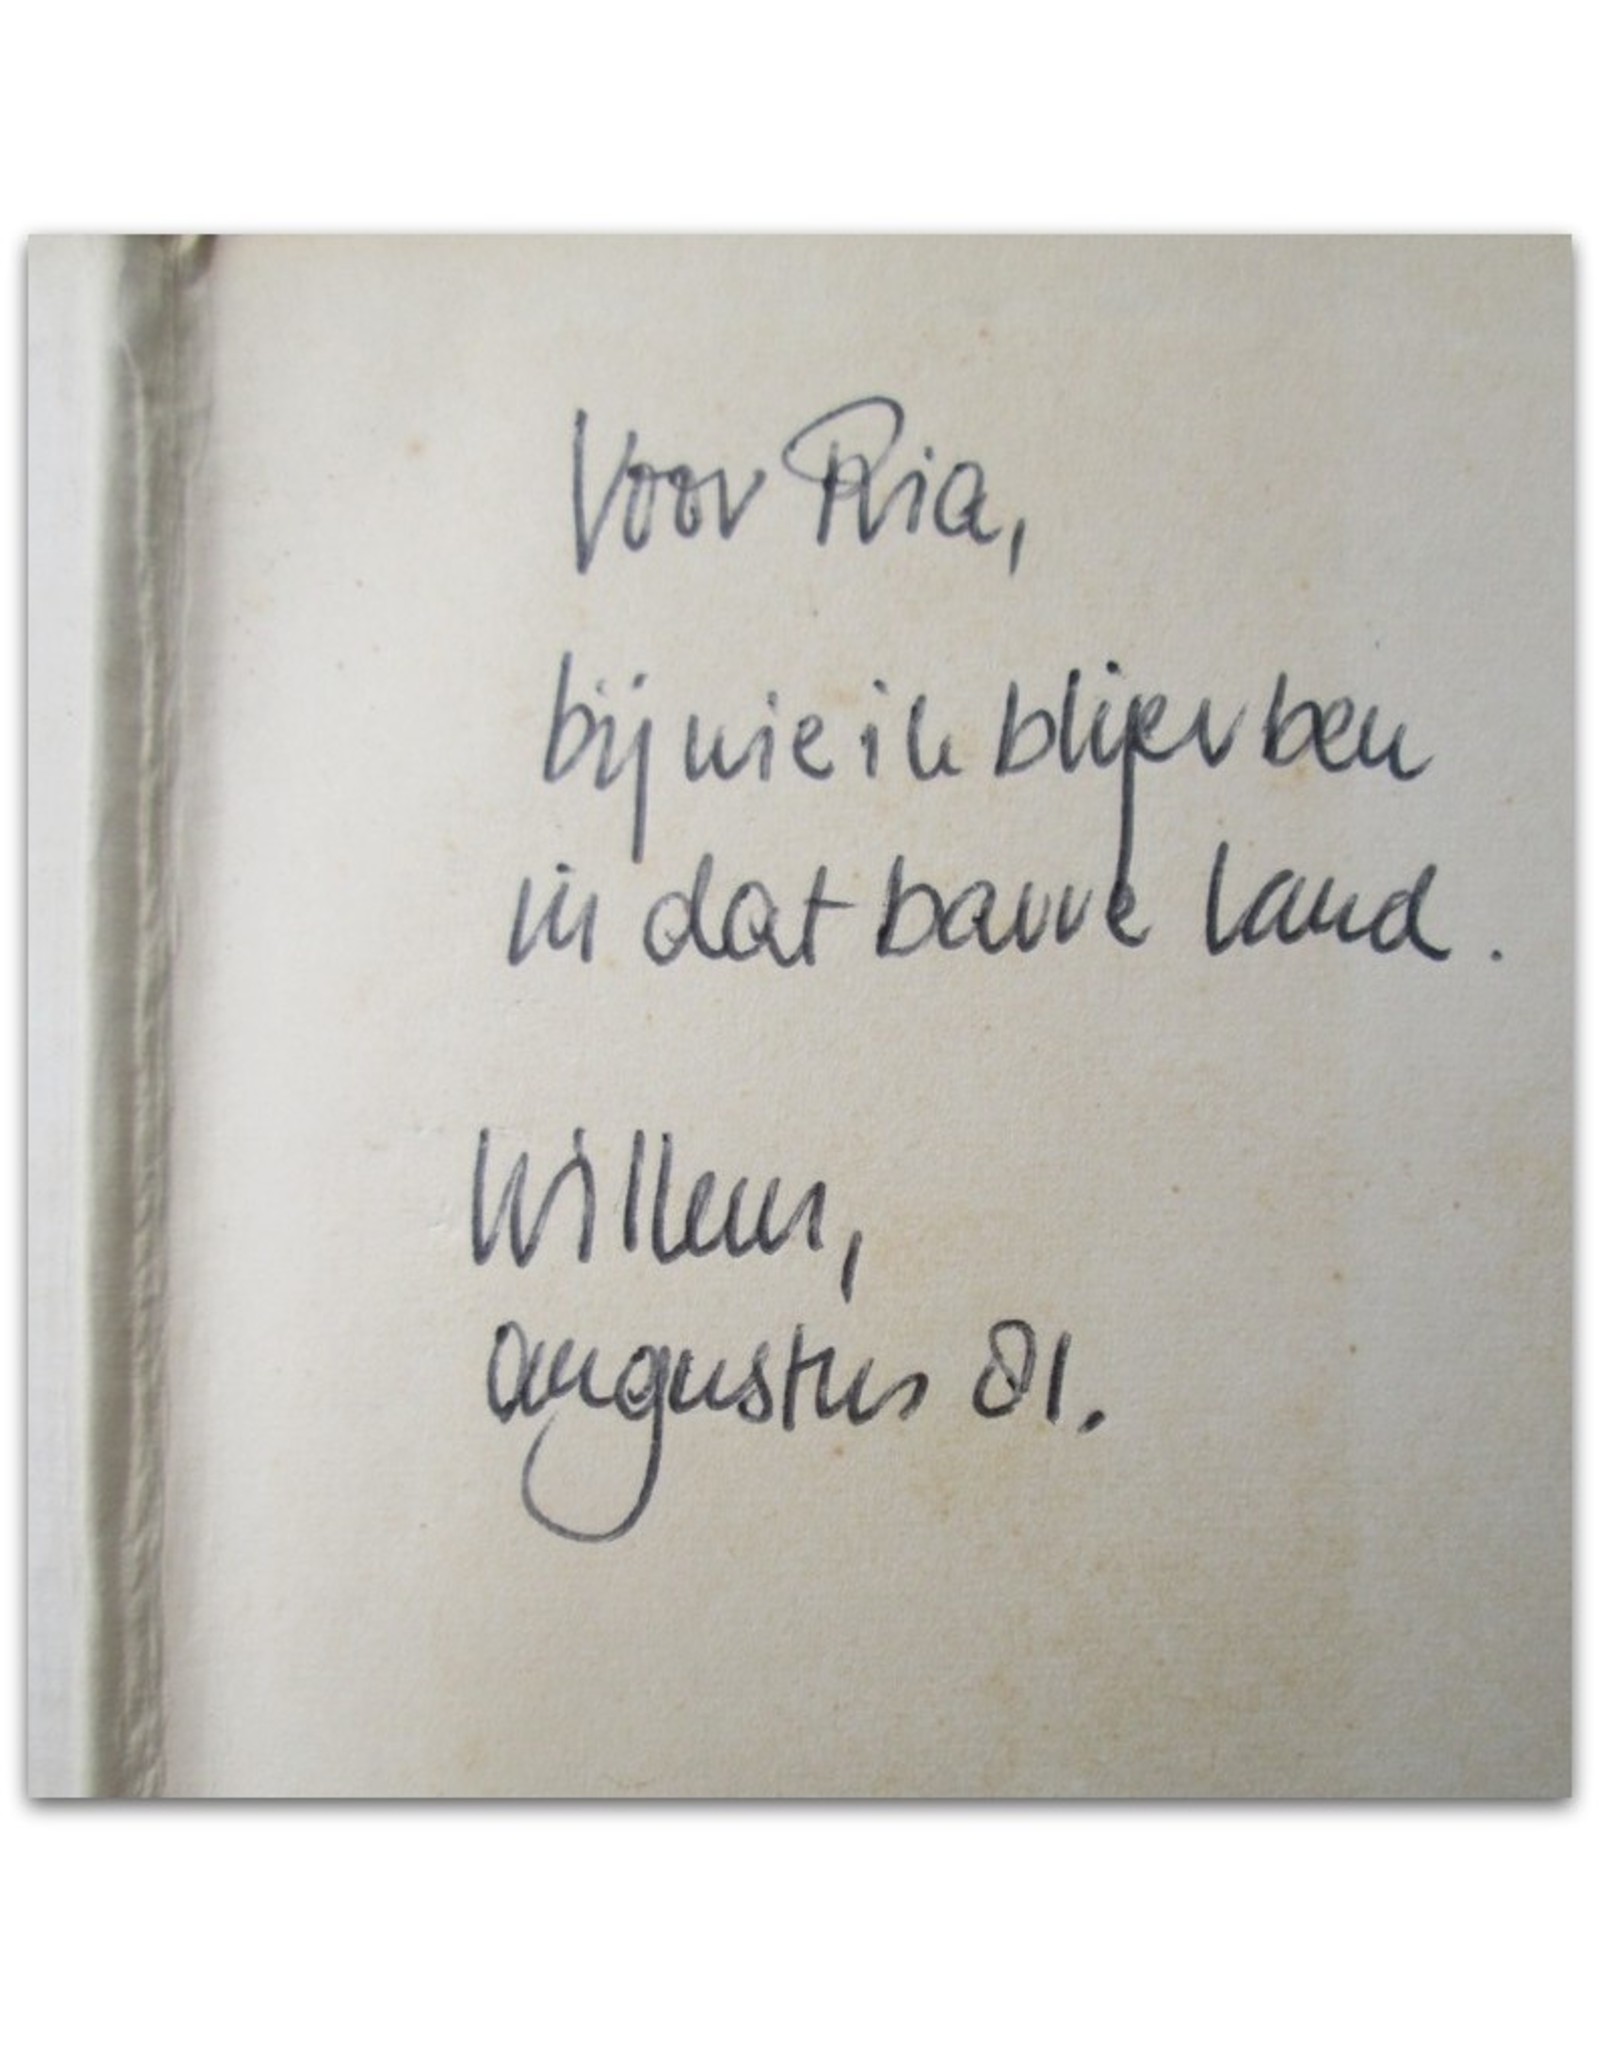 Voor Ria,
bij wie ik blijer ben
in dat barre land.
Willem,
augustus 81.